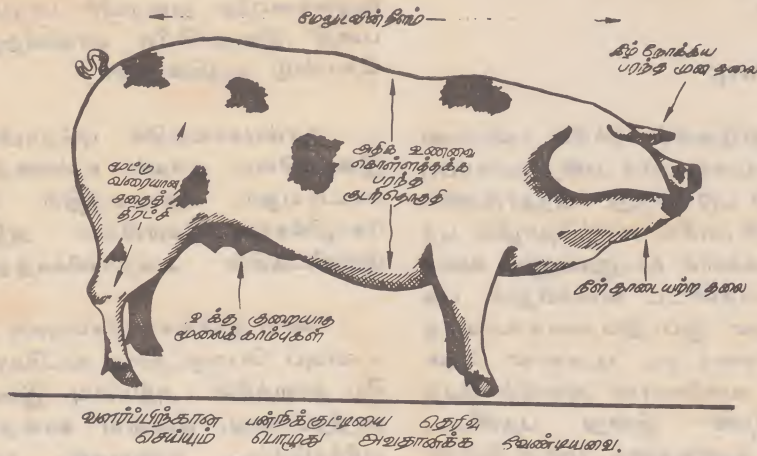 மேலுடலின் நீளம்
கீழ் நோக்கிய
பரந்த முன் தலை
மூட்டு
வரையான
சதைத்
திரட்சி
அதிக உணவை
கொள்ளத்தக்க
பரந்த
குடற்தொகுதி
கீள் தாடையற்ற தலை
உக்த குறையாத
முலைக் காம்புகள்
வளர்ப்பிற்கான பன்றிக்குட்டியை தெரிவு
செய்யும் பொழுது அவதானிக்க வேண்டியவை.